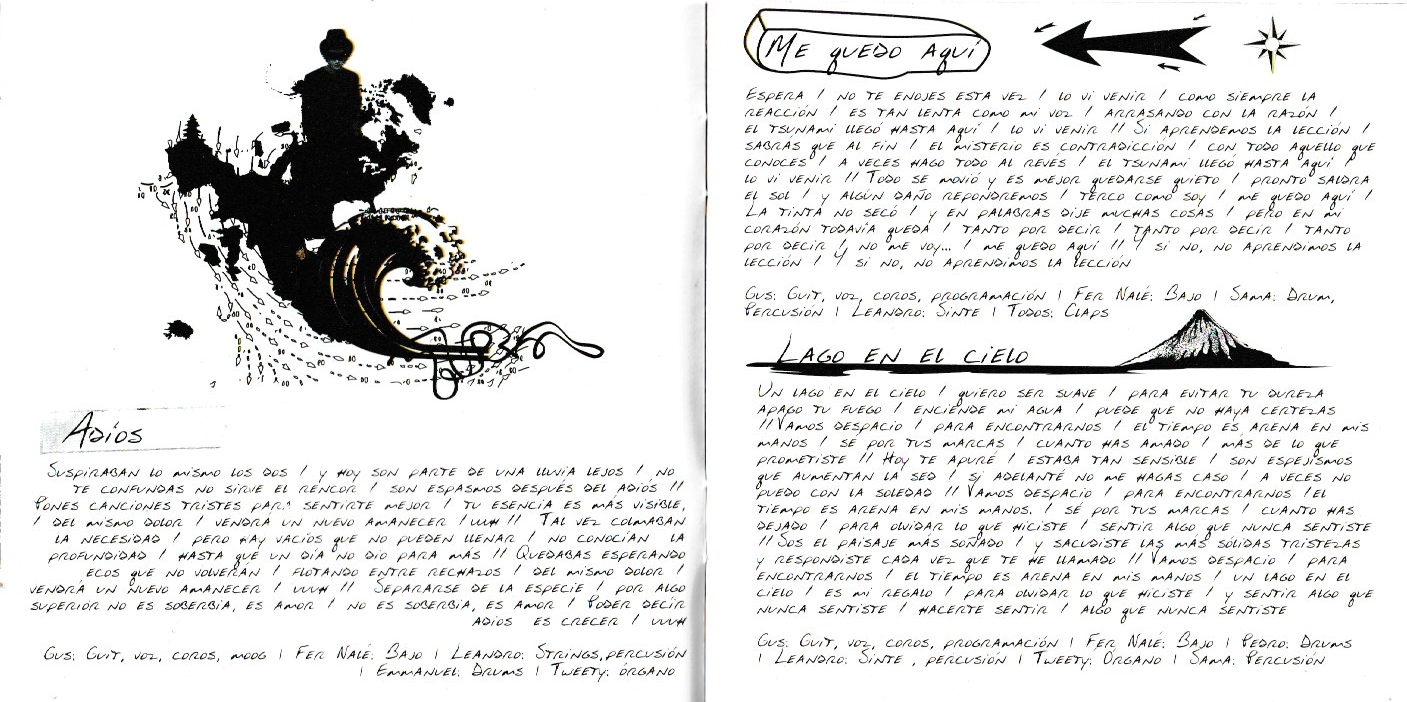 Adiós
Suspiraban lo mismo los dos / y hoy son parte de una lluvia lejos / no
te confundas no sirve el rencor / son espasmos después del adiós //
Pones canciones tristes para sentirte mejor / tu esencia es más visible,
/ del mismo dolor / vendrá un nuevo amanecer / uuh // Tal vez colmaban
la necesidad / pero hay vacíos que no pueden llenar / no conocían la
profundidad / hasta que un día no dio para más // Quedabas esperando
ecos que no volverán / flotando entre rechazos / del mismo dolor /
vendrá un nuevo amanecer / uuuh // Separarse de la especie / por algo
superior no es soberbia, es amor / no es soberbia, es amor / Poder decir
adiós es crecer / uuh
Gus: Guit, voz, coros, moog | Fer Nalé: Bajo | Leandro: Strings, percusión
| Emmanuel: Drums | Tweety: órgano
Me quedo aquí
Espera / no te enojes esta vez / lo vi venir / como siempre la
reacción / es tan lenta como mi voz / arrasando con la razón /
el tsunami llegó hasta aquí / lo vi venir // Si aprendemos la lección /
sabras que al fin / el misterio es contradicción / con todo aquello que
conoces / a veces hago todo al reves / el tsunami llegó hasta aquí /
lo vi venir // Todo se movió y es mejor quedarse quieto / pronto saldra
el sol / y algún daño repondremos / terco como soy / me quedo aquí /
La tinta no secó / y en palabras dije muchas cosas / pero en mi
corazón todavía queda / tanto por decir / tanto por decir / tanto
por decir / y no me voy... / me quedo aquí // Y si no, no aprendimos la
lección / Y si no, no aprendimos la lección
Gus: Guit, voz, coros, programación | Fer Nalé: Bajo | Sama: Drum,
Percusión | Leandro: Sinte | Todos: Claps
Lago en el cielo
Un lago en el cielo / quiero ser suave / para evitar tu dureza
apago tu fuego / enciende mi agua / puede que no haya certezas
// Vamos despacio / para encontrarnos / el tiempo es arena en mis
manos / sé por tus marcas / cuanto has amado / más de lo que
prometiste // Hoy te apuré / estaba tan sensible / son espejismos
que aumentan la sed / si adelanté no me hagas caso / a veces no
puedo con la soledad // Vamos despacio / para encontrarnos /el
tiempo es arena en mis manos. / sé por tus marcas / cuanto has
dejado / para olvidar lo que hiciste / sentir algo que nunca sentiste
// Sos el paisaje más soñado / y sacudiste las más sólidas tristezas
y respondiste cada vez que te he llamado // Vamos despacio / para
encontrarnos / el tiempo es arena en mis manos / un lago en el
cielo / es mi regalo / para olvidar lo que hiciste / y sentir algo que
nunca sentiste / hacerte sentir / algo que nunca sentiste
Gus: Guit, voz, coros, programación | Fer Nalé: Bajo | Pedro: Drums
| Leandro: Sinte , percusión | Tweety: Organo | Sama: Percusión